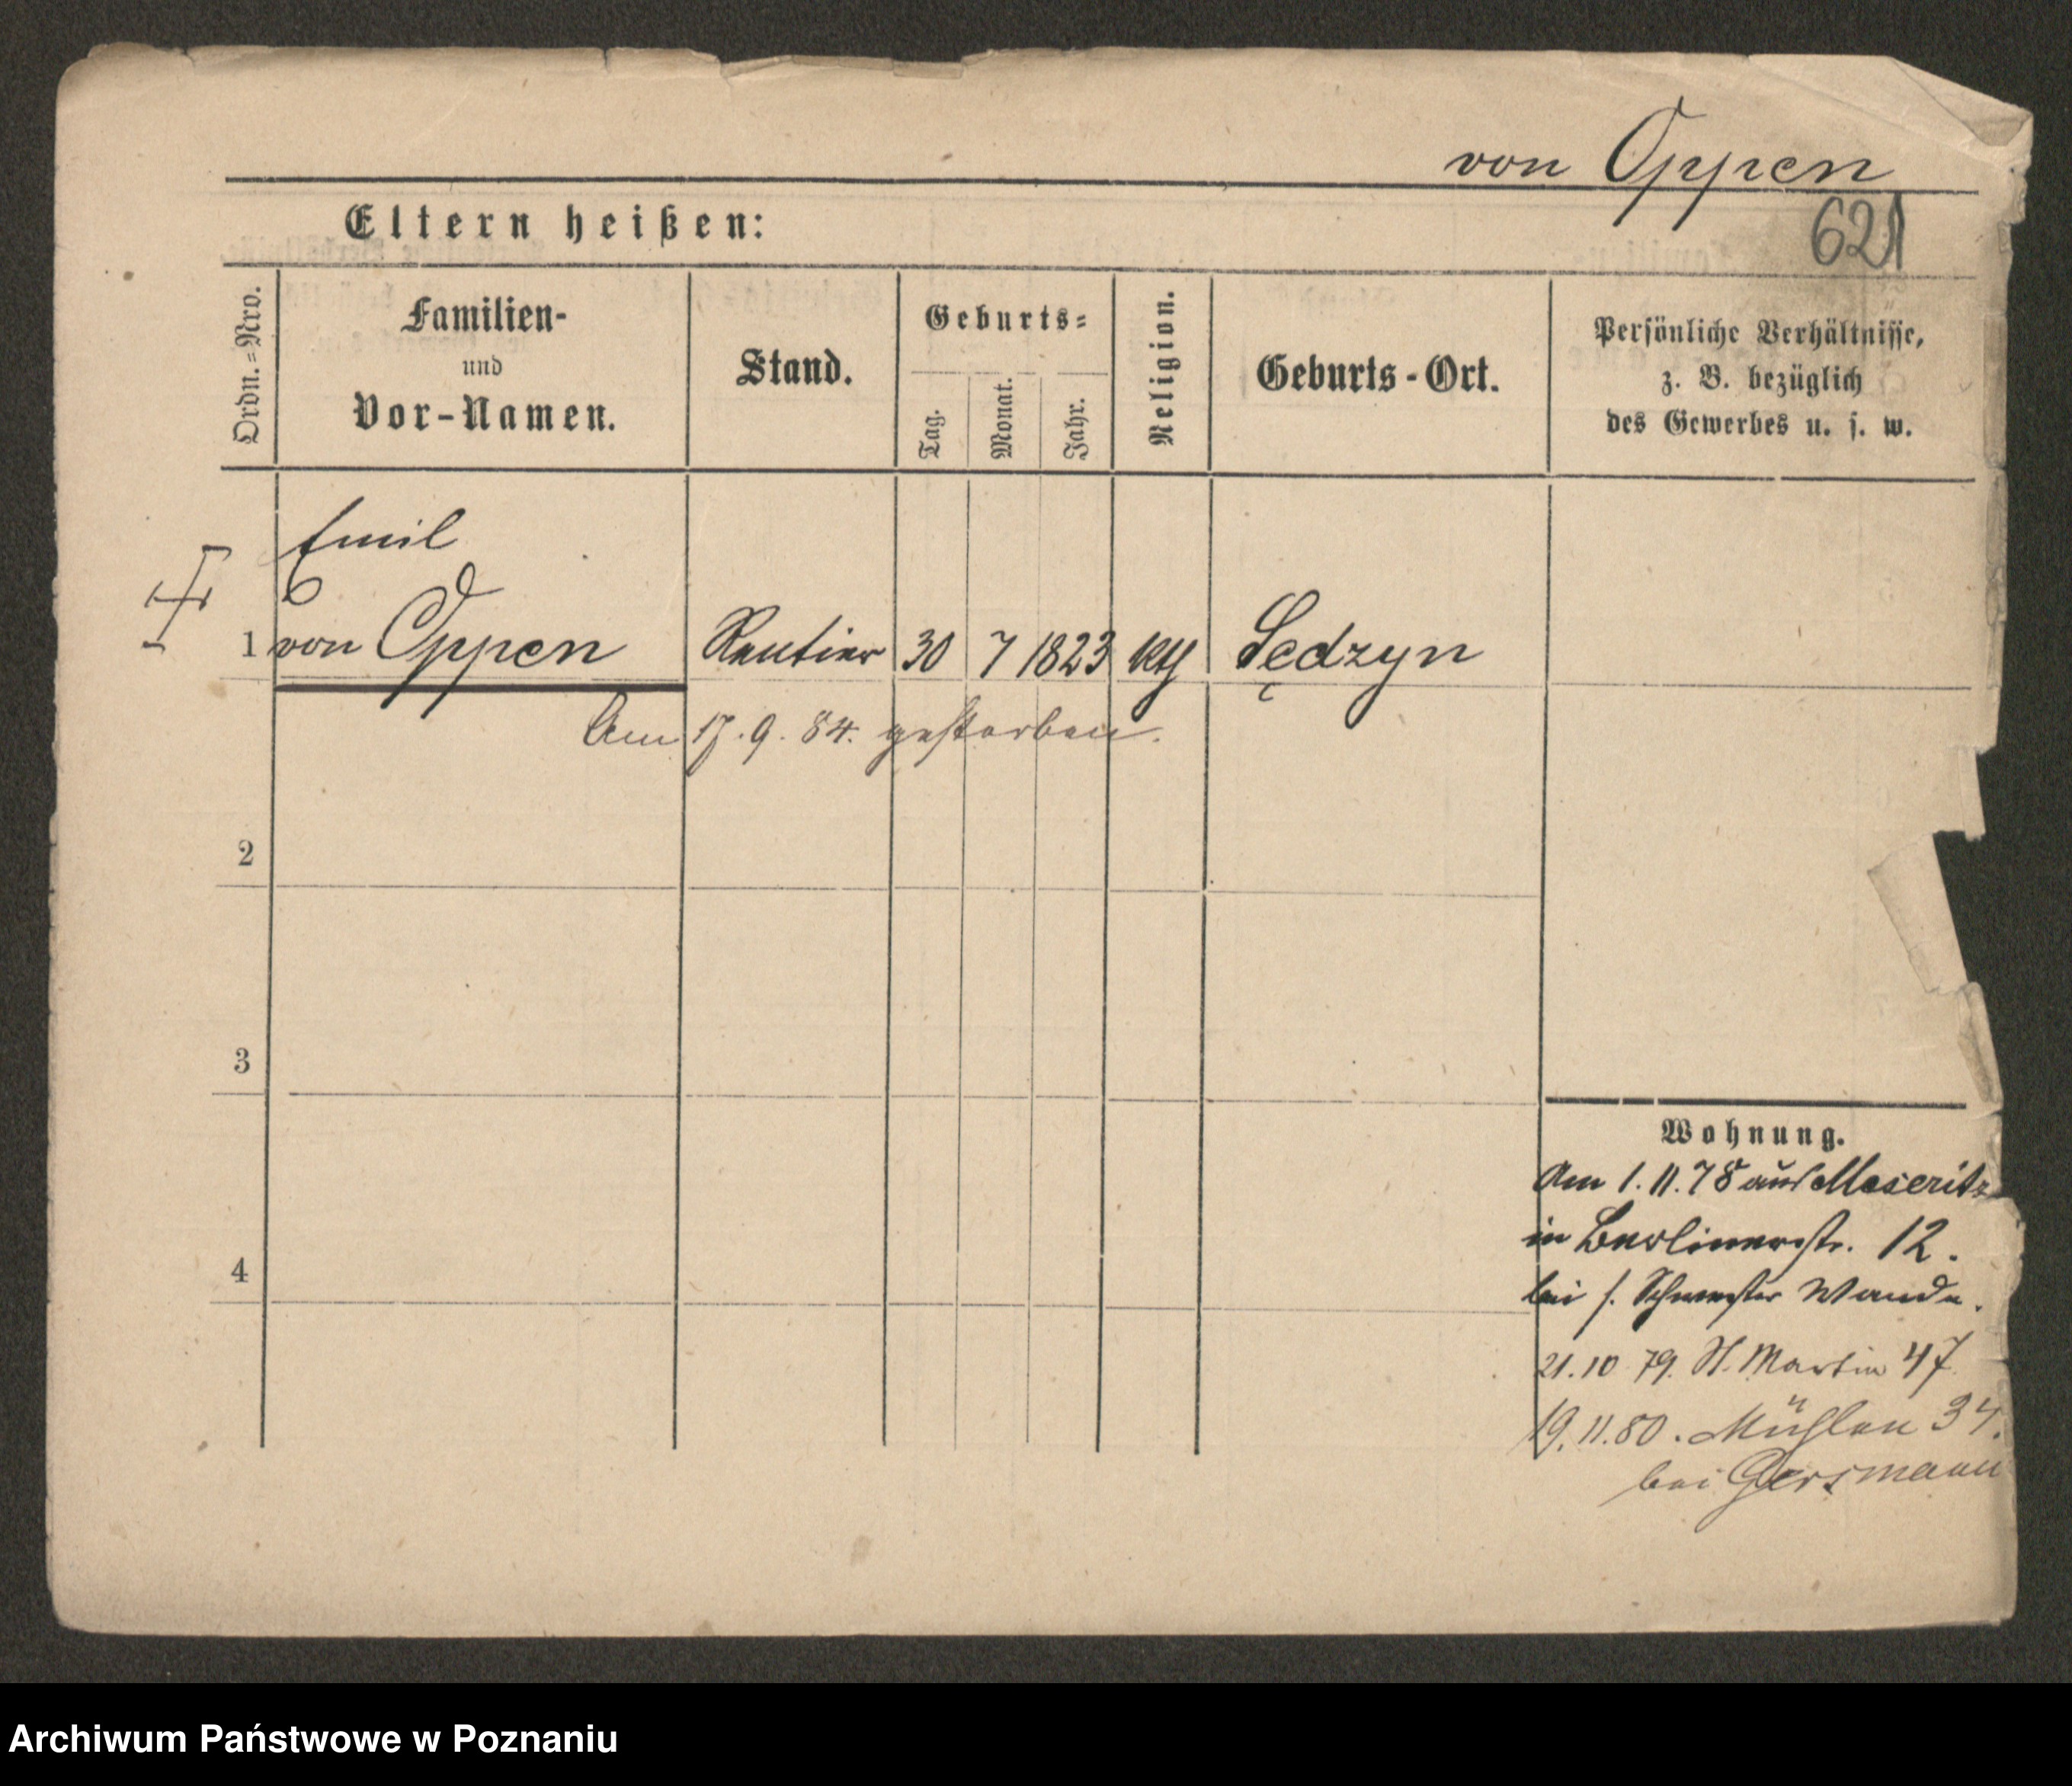 von Oppen
621
Eltern heißen:
Ordn.=Nro.
Familien-
und
Vor-Namen.
Stand.
Geburts=
Tag.
Monat.
Jahr.
Religion.
Geburts-Ort.
Persönliche Verhältnisse,
z. B. bezüglich
des Gewerbes u. s. w.
Emil
1 von Oppen Rentier 30 7 1823 kth Sędzyn
Am 17.9.84. gestorben.
2
3
4
Wohnung.
Am 1.11.78 aus Meseritz
in Berlinerstr. 12.
bei s. Schwester Wanda.
21.10 79. St. Martin 47
19.11.80. Mühlen 34.
bei Gersmann
Archiwum Państwowe w Poznaniu